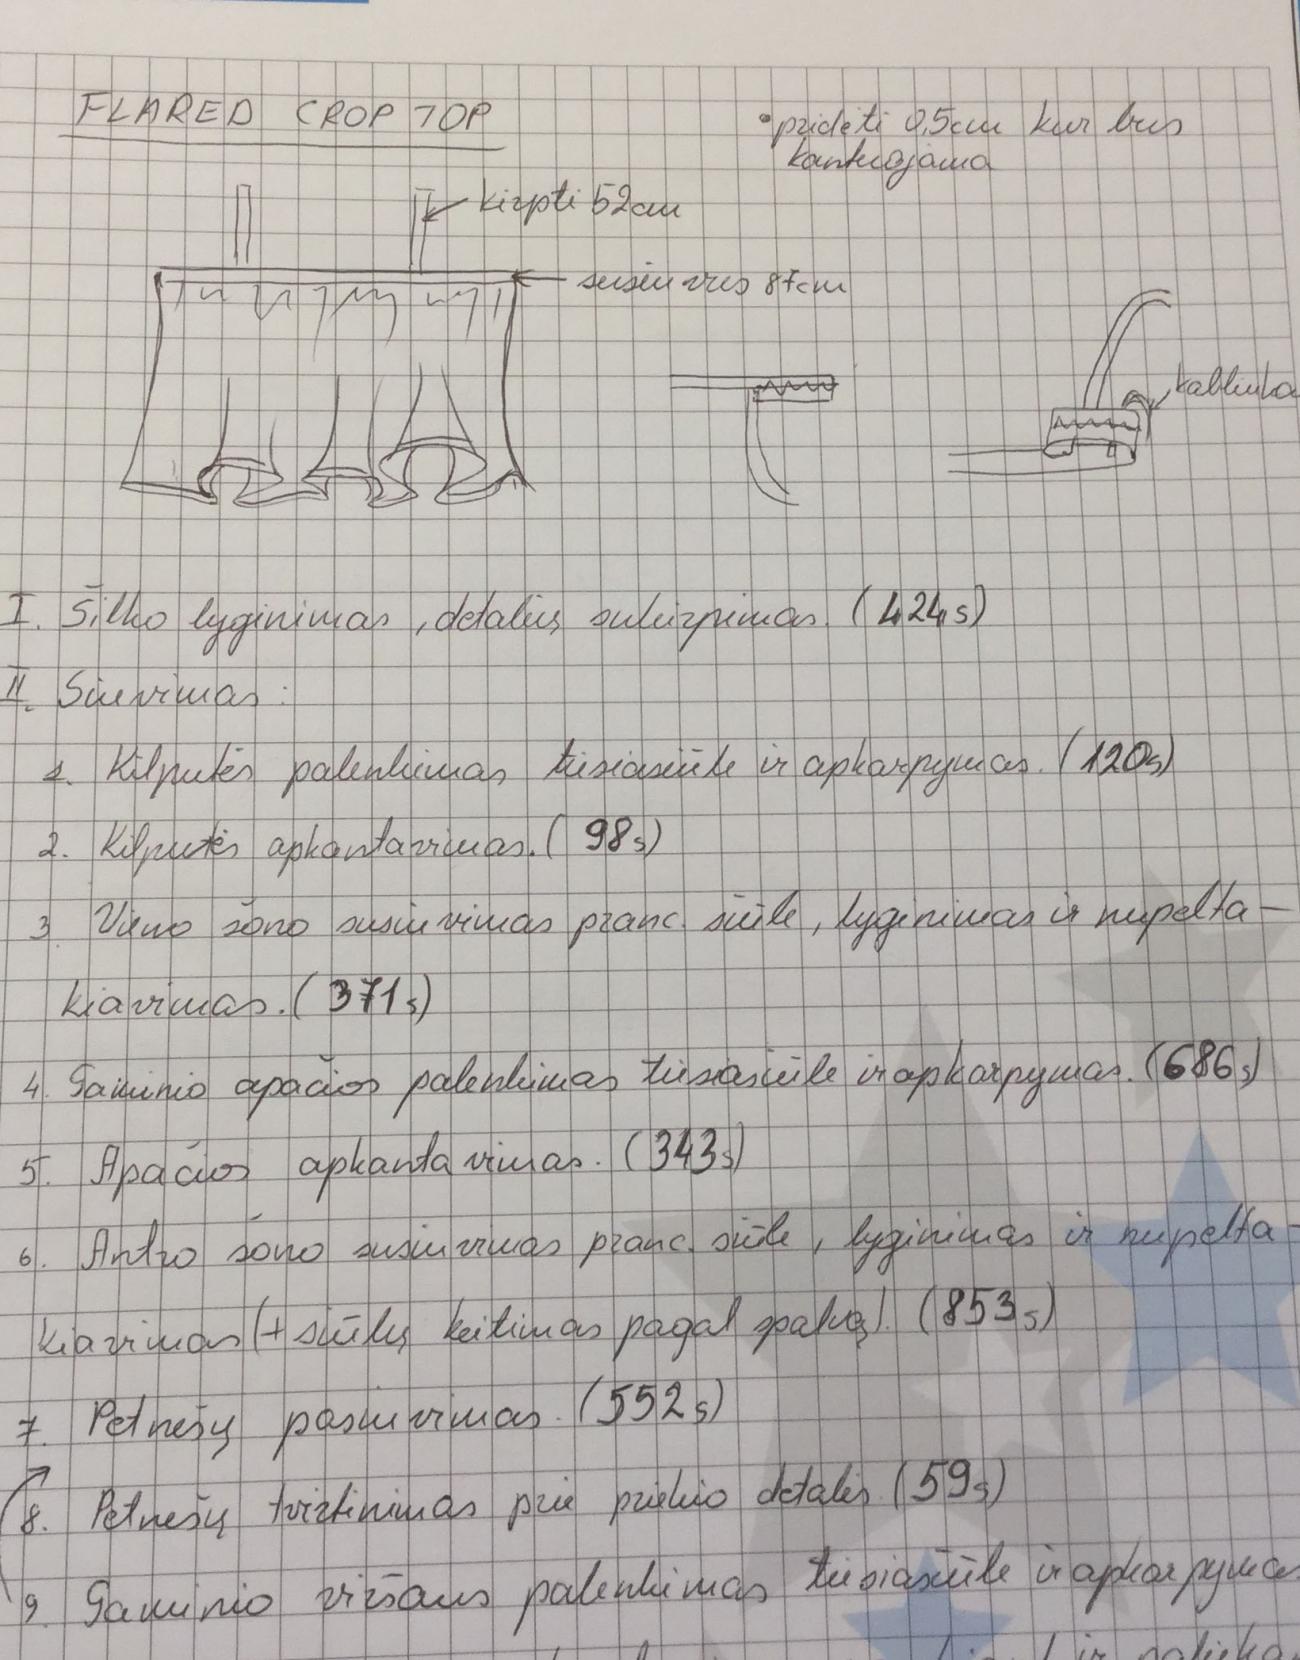 FLARED CROP TOP
• pridėti 0,5cm kur bus
kantuojama
kirpti 52cm
susiuvus 87cm
kabliuka
I. Šilko lyginimas, detalių sukirpimas. (424s)
II. Siuvimas:
1. Kilputės palenkimas tiesiasiūle ir apkarpymas. (120s)
2. Kilputės apkantavimas. (98s)
3. Vieno šono susiuvimas pranc. siūle, lyginimas ir nupelta-
kiavimas. (371s)
4. Gaminio apačios palenkimas tiesiasiūle ir apkarpymas. (686s)
5. Apačios apkantavimas. (343s)
6. Antro šono susiuvimas pranc. siūle, lyginimas ir nupelta-
kiavimas (+ siūlų keitimas pagal spalvą). (853s)
7. Petnešų pasiuvimas. (552s)
8. Petnešų tvirtinimas prie priekio detalės (59s)
9. Gaminio viršaus palenkimas tiesiasiūle ir apkarpymas
ir